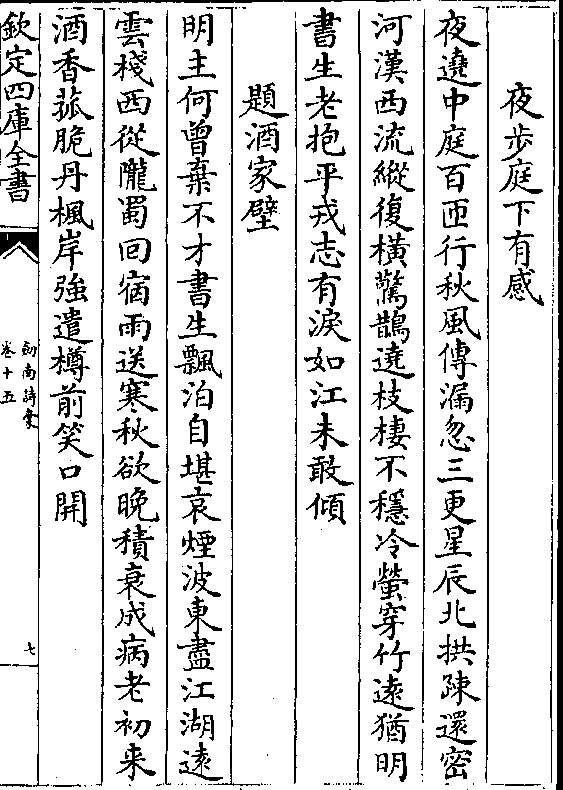 夜步庭下有感
夜遶中庭百匝行秋風傳漏忽三更星辰北拱疎還密
河漢西流縱復橫驚鵲遶枝棲不穩冷螢穿竹遠猶明
書生老抱平戎志有淚如江未敢傾
題酒家壁
明主何曾棄不才書生飄泊自堪哀煙波東盡江湖遠
雲棧西從隴蜀回宿雨送寒秋欲晚積衰成病老初来
酒香菰脆丹楓岸強遣樽前笑口開
欽定四庫全書
劍南詩稾
卷十五
七